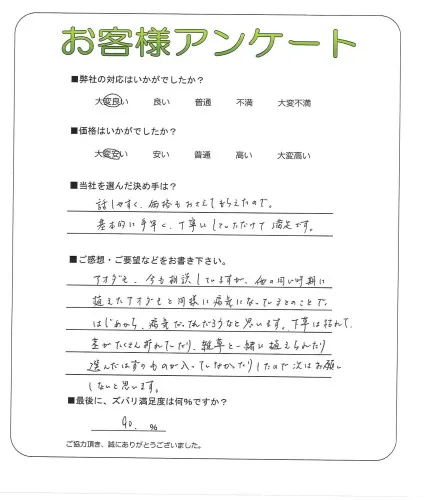 お客様アンケート
■弊社の対応はいかがでしたか？
大変良い 良い 普通 不満 大変不満
■価格はいかがでしたか？
大変安い 安い 普通 高い 大変高い
■当社を選んだ決め手は？
話しやすく、価格もおさえてもらえたので。
基本的に手早く、丁寧にしていただけて満足です。
■ご感想・ご要望などをお書き下さい。
アオダモ、今も相談していますが、他の同い時期に
植えたアオダモと同様に病気になっているとのことで、
はじめから、病気だったんだろうなと思います。下草は枯れて、
茎がたくさん折れていたり、雑草と一緒に植えられたり
選んだはずのものが入っていなかったりしたので次はお願い
しないと思います。
■最後に、ズバリ満足度は何%ですか？
90. %
ご協力頂き、誠にありがとうございました。